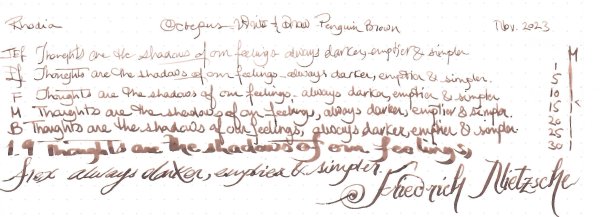 Rhodia Octopus Write & Draw Penguin Brown Nov. 2023
IEF Thoughts are the shadows of our feelings always darker, emptier & simpler M
EF Thoughts are the shadows of our feelings always darker, emptier & simpler. 1 5
F Thoughts are the shadows of our feelings. always darker, emptier & simpler 10
M Thoughts are the shadows of our feelings, always darker, emptier & simpler. 15 20
B Thoughts are the shadows of our feelings, always darker, emptier & simpler 25
1.9 Thoughts are the shadows of our feelings, 30
flex always darker, emptier & simpler.
@ Friedrich Nietzsche